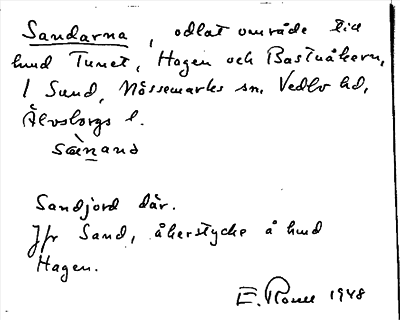 Sandarna, odlat område till
hmd Tunet, Hagen och Bastuåkern,
1 Sund, Nössemarks sn, Vedbo hd,
Älvsborgs l.
Sandjord där.
Jfr Sand, åkerstycke å hmd
Hagen.
E. 1948